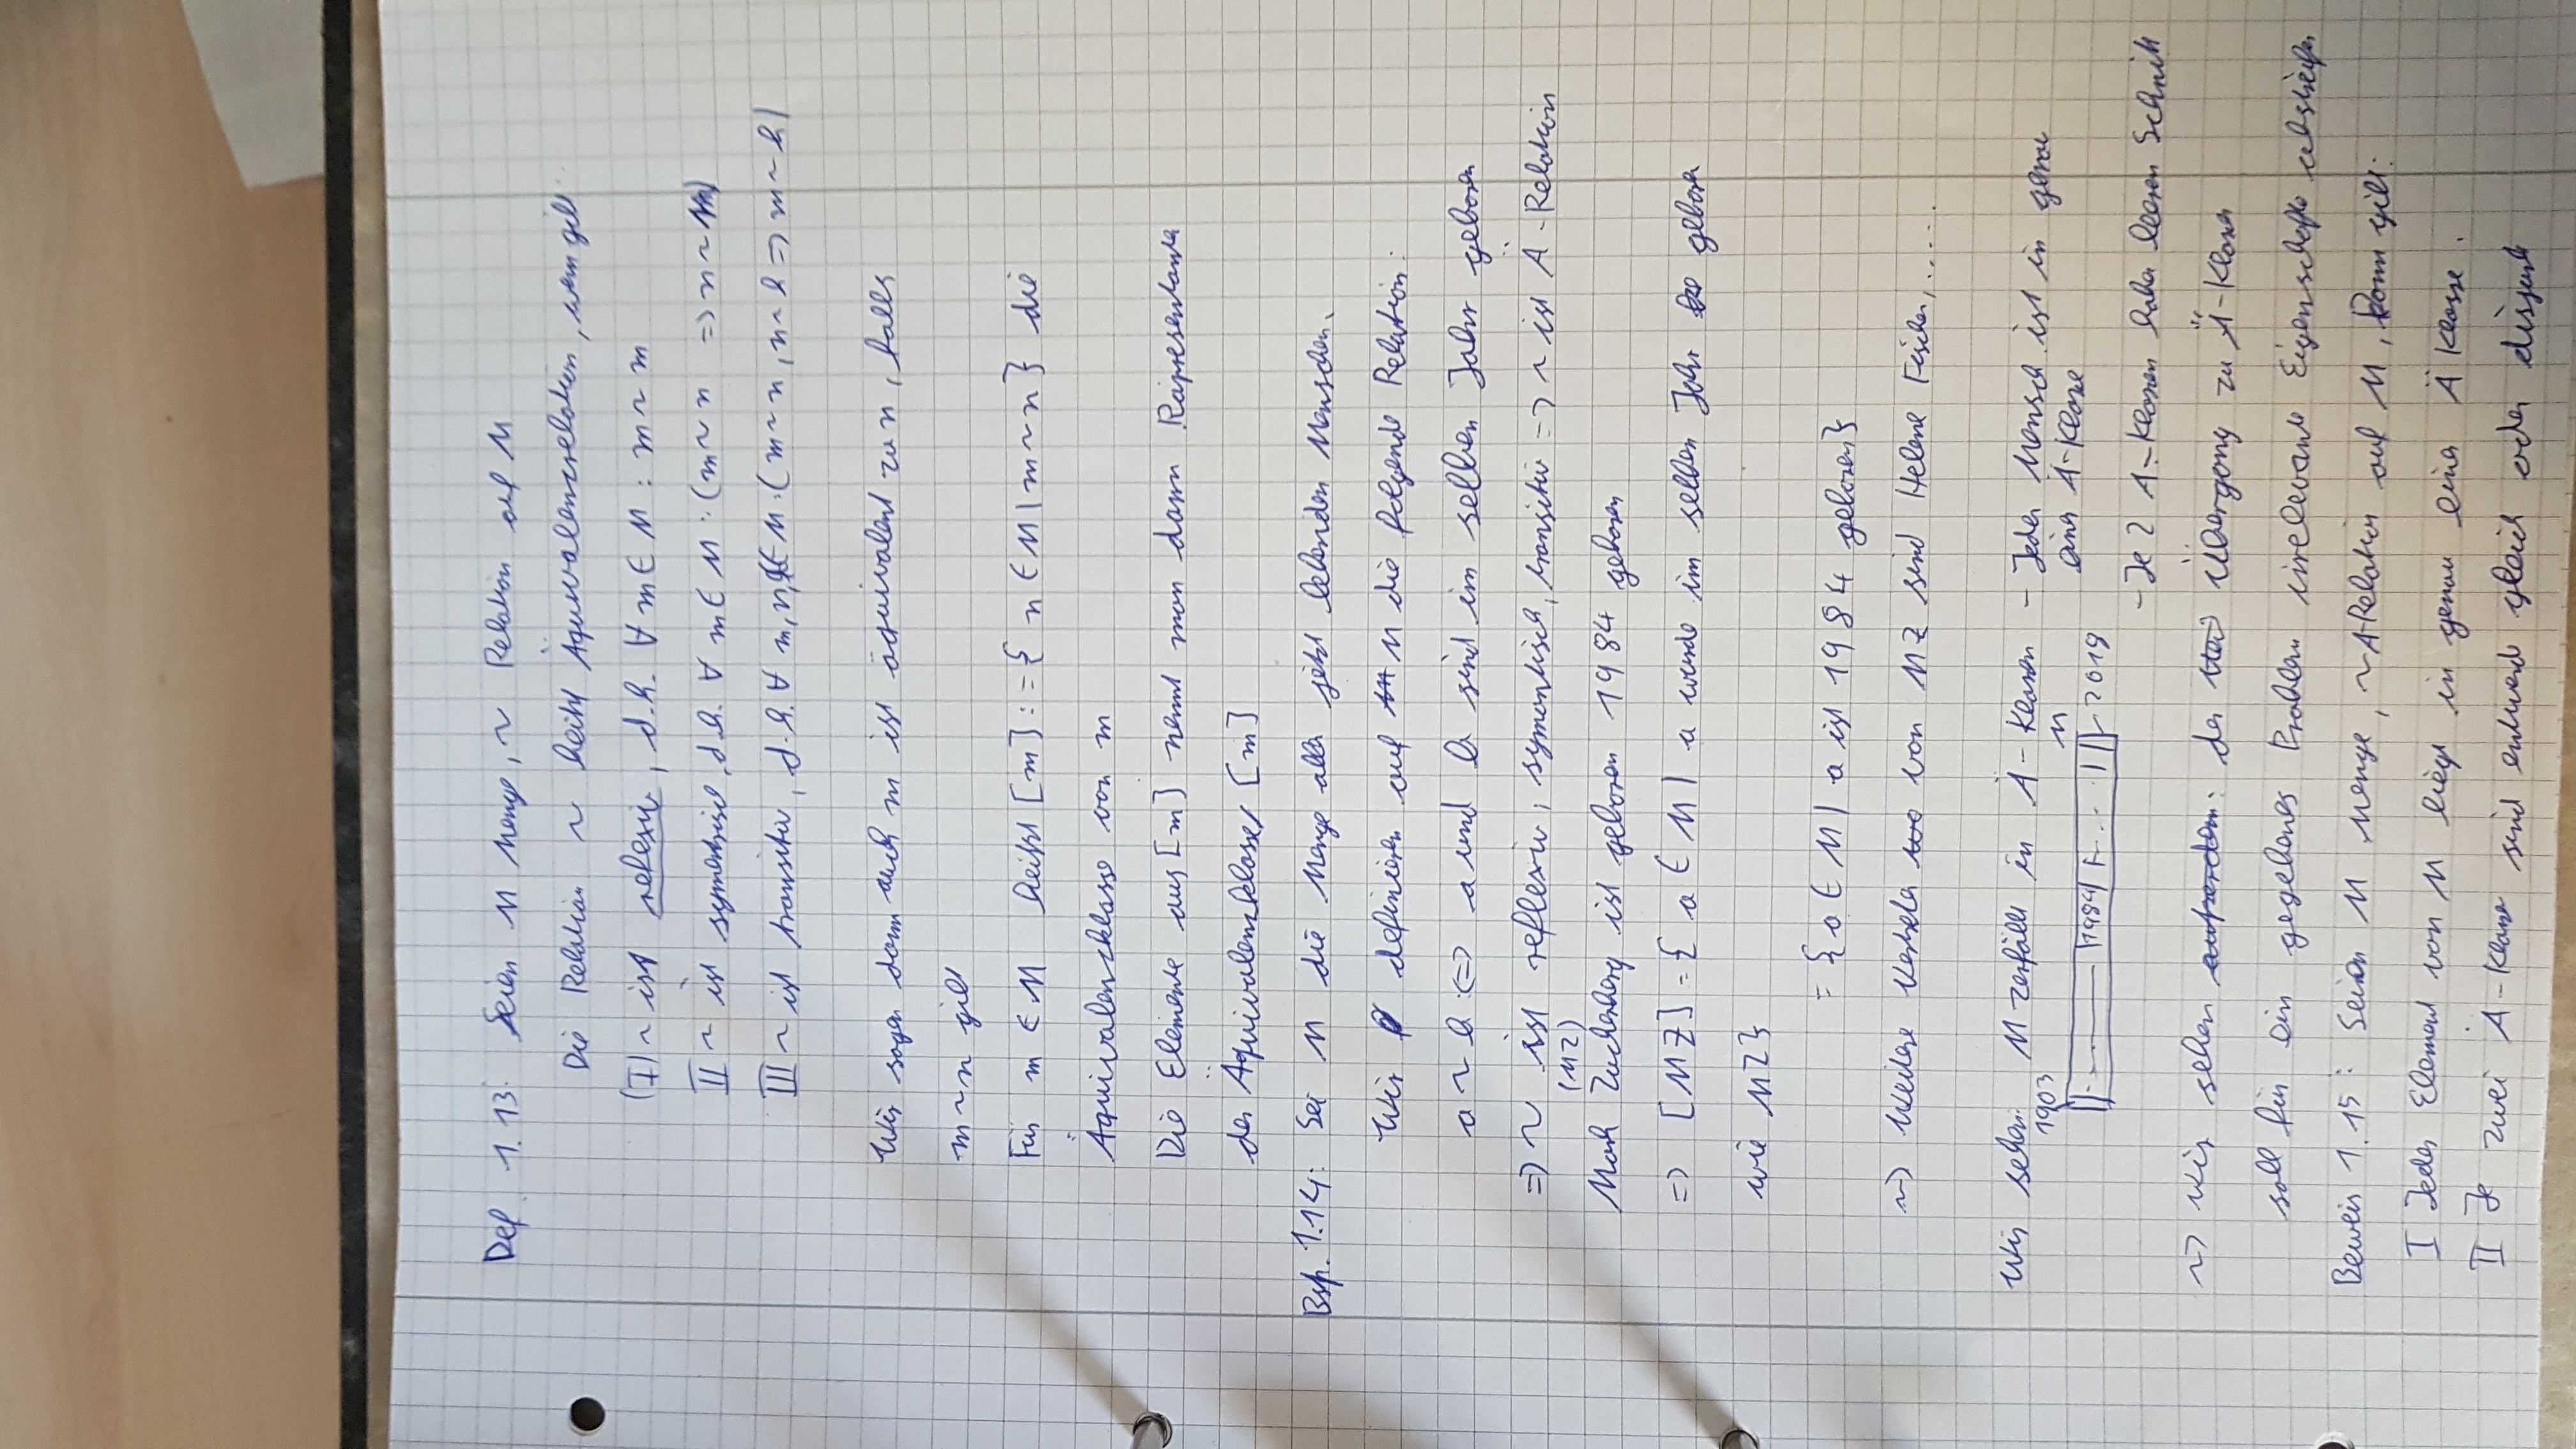 Def. 1.13: Seien M Menge, ~ Relation auf M
Die Relation ~ heißt Äquivalenzrelation, wenn gilt
(I) ~ ist reflexiv, d.h. ∀ m ∈ M : m ~ m
II ~ ist symetrisch, d.h. ∀ m ∈ M : (m ~ n => n ~ m)
III ~ ist transitiv, d.h. ∀ m, n, k ∈ M : (m ~ n, n ~ k => m ~ k)
Wir sagen dann auch m ist äquivalent zu n, falls
m ~ n gilt
Für m ∈ M heißt [m] := { n ∈ M | m ~ n } die
Äquivalenzklasse von m
Die Elemente aus [m] nennt man dann Räpresentanten
der Äquivalenzklasse [m]
Bsp. 1.14: Sei M die Menge aller jetzt lebenden Menschen.
Wir definieren auf M die folgende Relation:
a ~ b :<=> a und b sind im selben Jahr geboren
=> ~ ist reflexiv, symantisch, transitiv => ~ ist Ä-Relation
(MZ)
Mark Zuckerberg ist geboren 1984 geboren
=> [MZ] = { a ∈ M | a wurde im selben Jahr geboren
wie MZ}
= { a ∈ M | a ist 1984 geboren}
~> Weitere von MZ sind Helene Fischer, .....
Wir sehen: M zerfällt in Ä-Klassen - Jeder Mensch ist in genau
einer Ä-Klasse
1903
M
1984
2019
- Je 2 Ä-Klassen haben leeren Schnitt
~> Wir sehen außerdem: der Übergang zu Ä-Klassen
soll für ein gegebenes Problem irrelevante Eigenschaften abstreifen
Beweis 1.15: Seien M Menge, ~ Ä-Relation auf M, Dann gilt:
I Jedes Element von M liegt in genau einer Ä Klasse.
II Je zwei Ä-Klassen sind entweder gleich oder disjunkt